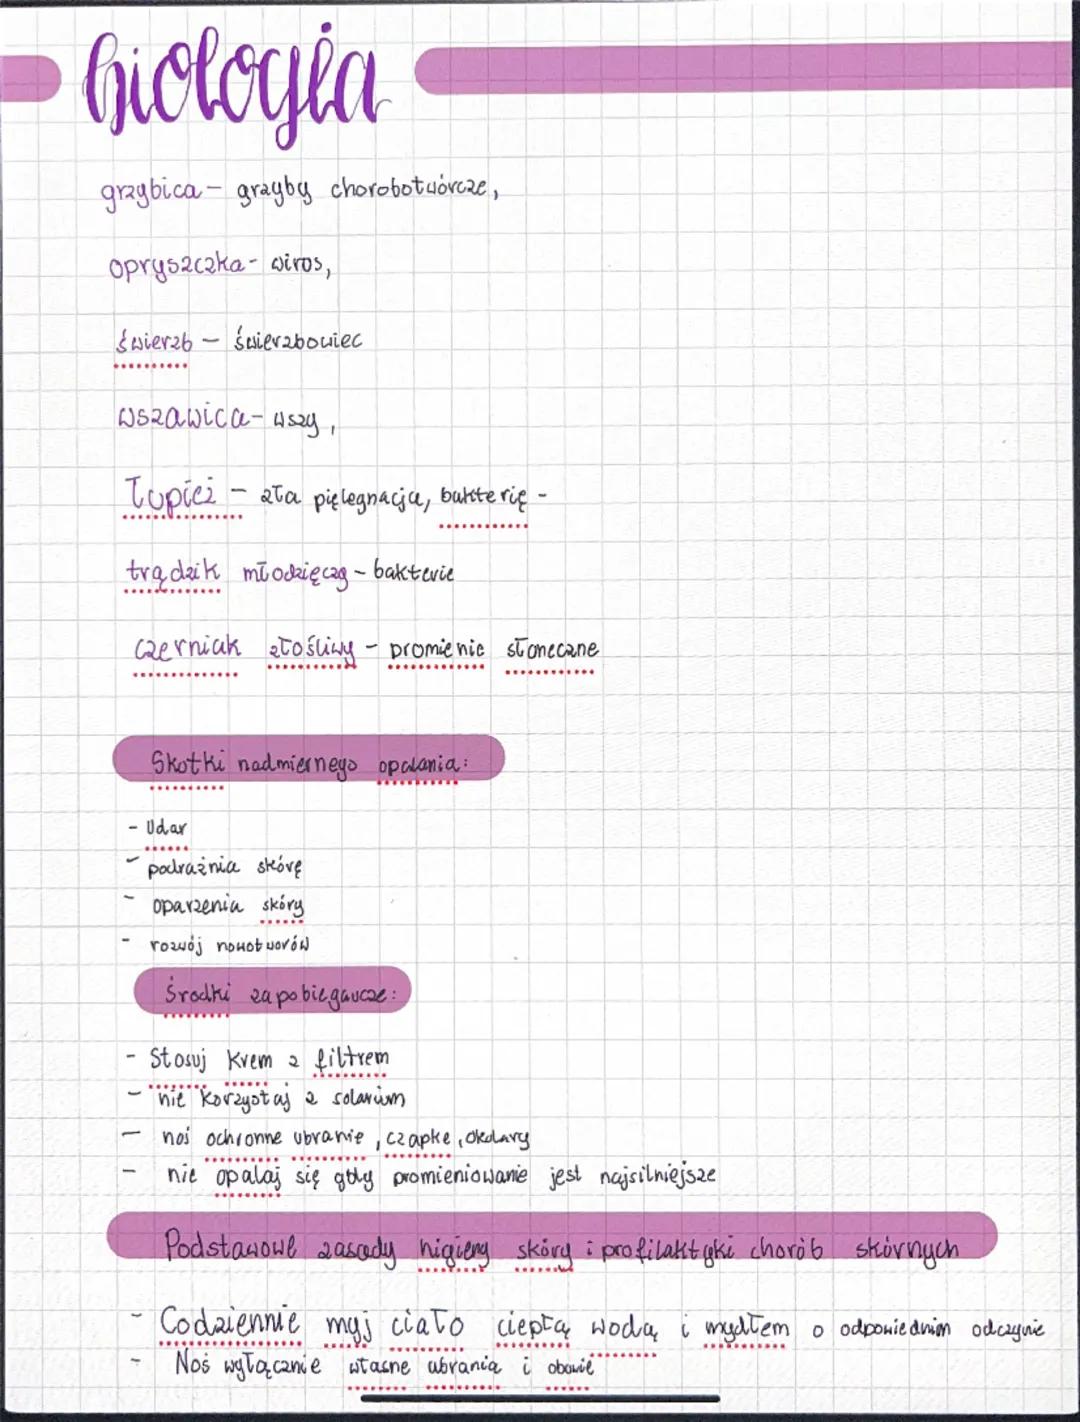 biologia
grzybica - grzyby chorobotwórcze,
opryszczka - wiros,
świerzb - świerzbowiec
wszawica - wszy,
Łupież - zła pięlegnacja, bakterię -
trądzik młodzięczy - bakterie
czerniak złośliwy - promienie słoneczne
Skótki nadmiernego opalania:
- Udar
- podrażnia skórę
- oparzenia skóry
- rozwój nowotworów
Środki zapobiegaucze:
- Stosuj krem z filtrem
- nie korzystaj z solarium
- noś ochronne ubranie, czapke, okulary
- nie opalaj się gdy promieniowanie jest najsilniejsze
Podstawowe zasady higieny skóry i profilaktyki chorób skórnych
- Codziennie myj ciało ciepłą wodą i mydłem o odpowiednim odczynie
- Noś wyłącznie własne ubrania i obuwie